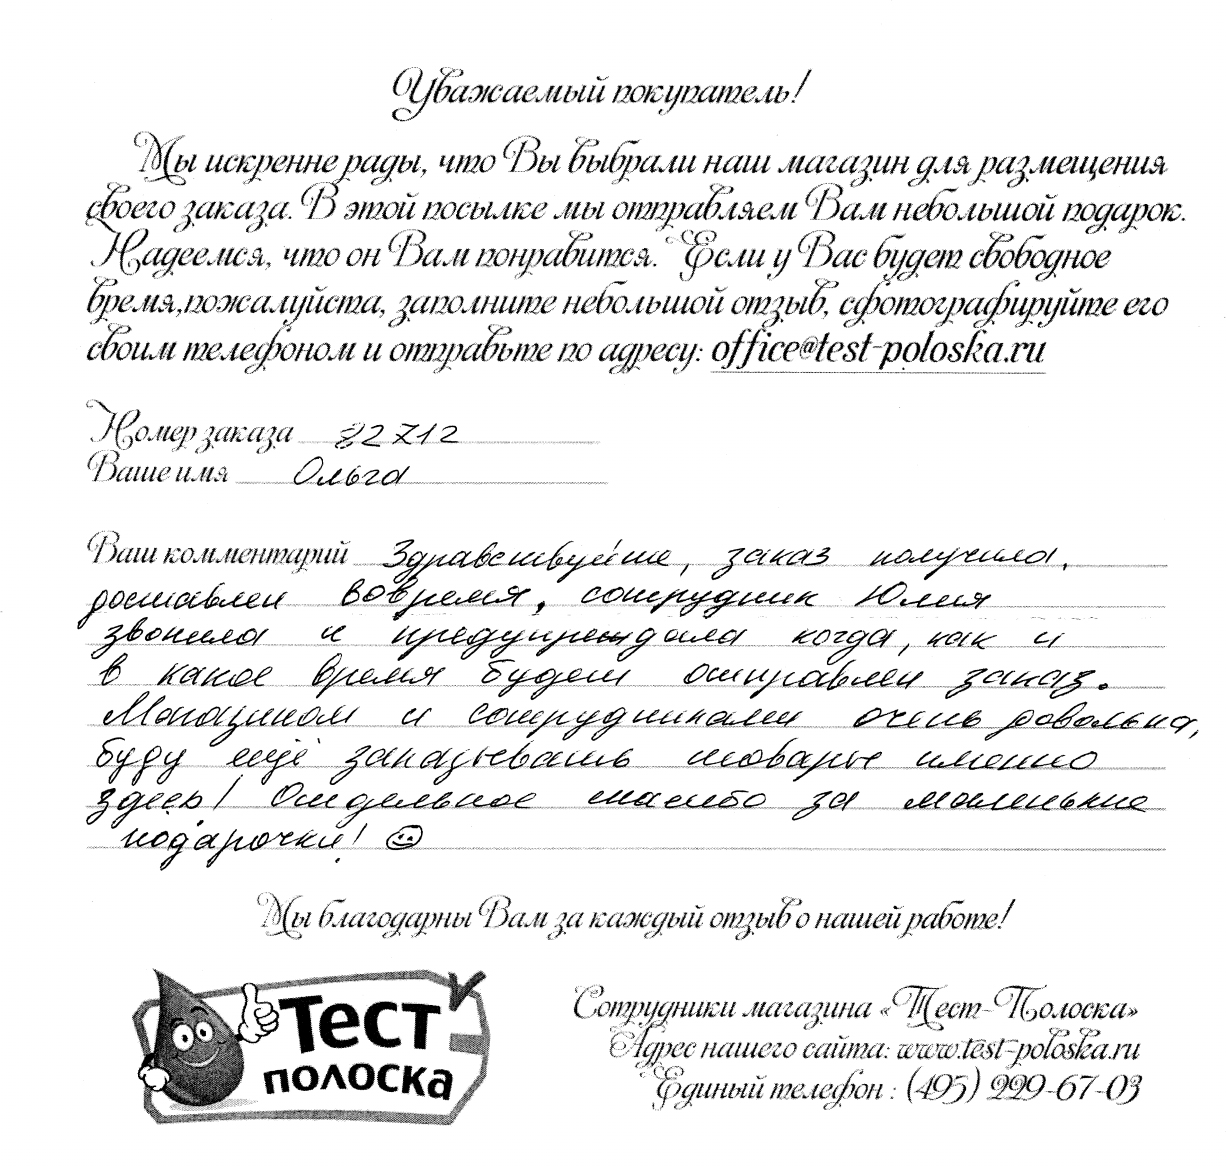 Уважаемый покупатель!
Мы искренне рады, что Вы выбрали наш магазин для размещения
своего заказа. В этой посылке мы отправляем Вам небольшой подарок.
Надеемся, что он Вам понравится. Если у Вас будет свободное
время,пожалуйста, заполните небольшой отзыв, сфотографируйте его
своим телефоном и отправьте по адресу: office@test-poloska.ru
Номер заказа 22712
Ваше имя Ольга
Ваш комментарий Здравствуйте, заказ получила,
доставлен вовремя, сотрудник Юлия
звонила и предупреждала когда, как и
в какое время будет отправлен заказ.
Магазином и сотрудниками очень довольна,
буду ещё заказывать товары именно
здесь! Отдельное спасибо за маленькие
подарочки! ☺
Мы благодарны Вам за каждый отзыв о нашей работе!
Тест
полоска
Сотрудники магазина «Тест-Полоска»
Адрес нашего сайта: www.test-poloska.ru
Единый телефон : (495) 229-67-03